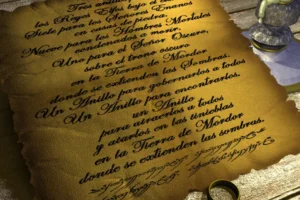 Tres anillos
los Reyes Elfos bajo el
Siete para los Señores Enanos
en casas de piedra.
Nueve para los Hombres Mortales
condenados a morir.
Uno para el Señor Oscuro,
sobre el trono oscuro
en la Tierra de Mordor
donde se extienden las Sombras.
Un Anillo para gobernarlos a todos.
Un Anillo para encontrarlos,
un Anillo
para atraerlos a todos
y atarlos en las tinieblas
en la Tierra de Mordor
donde se extienden las sombras.